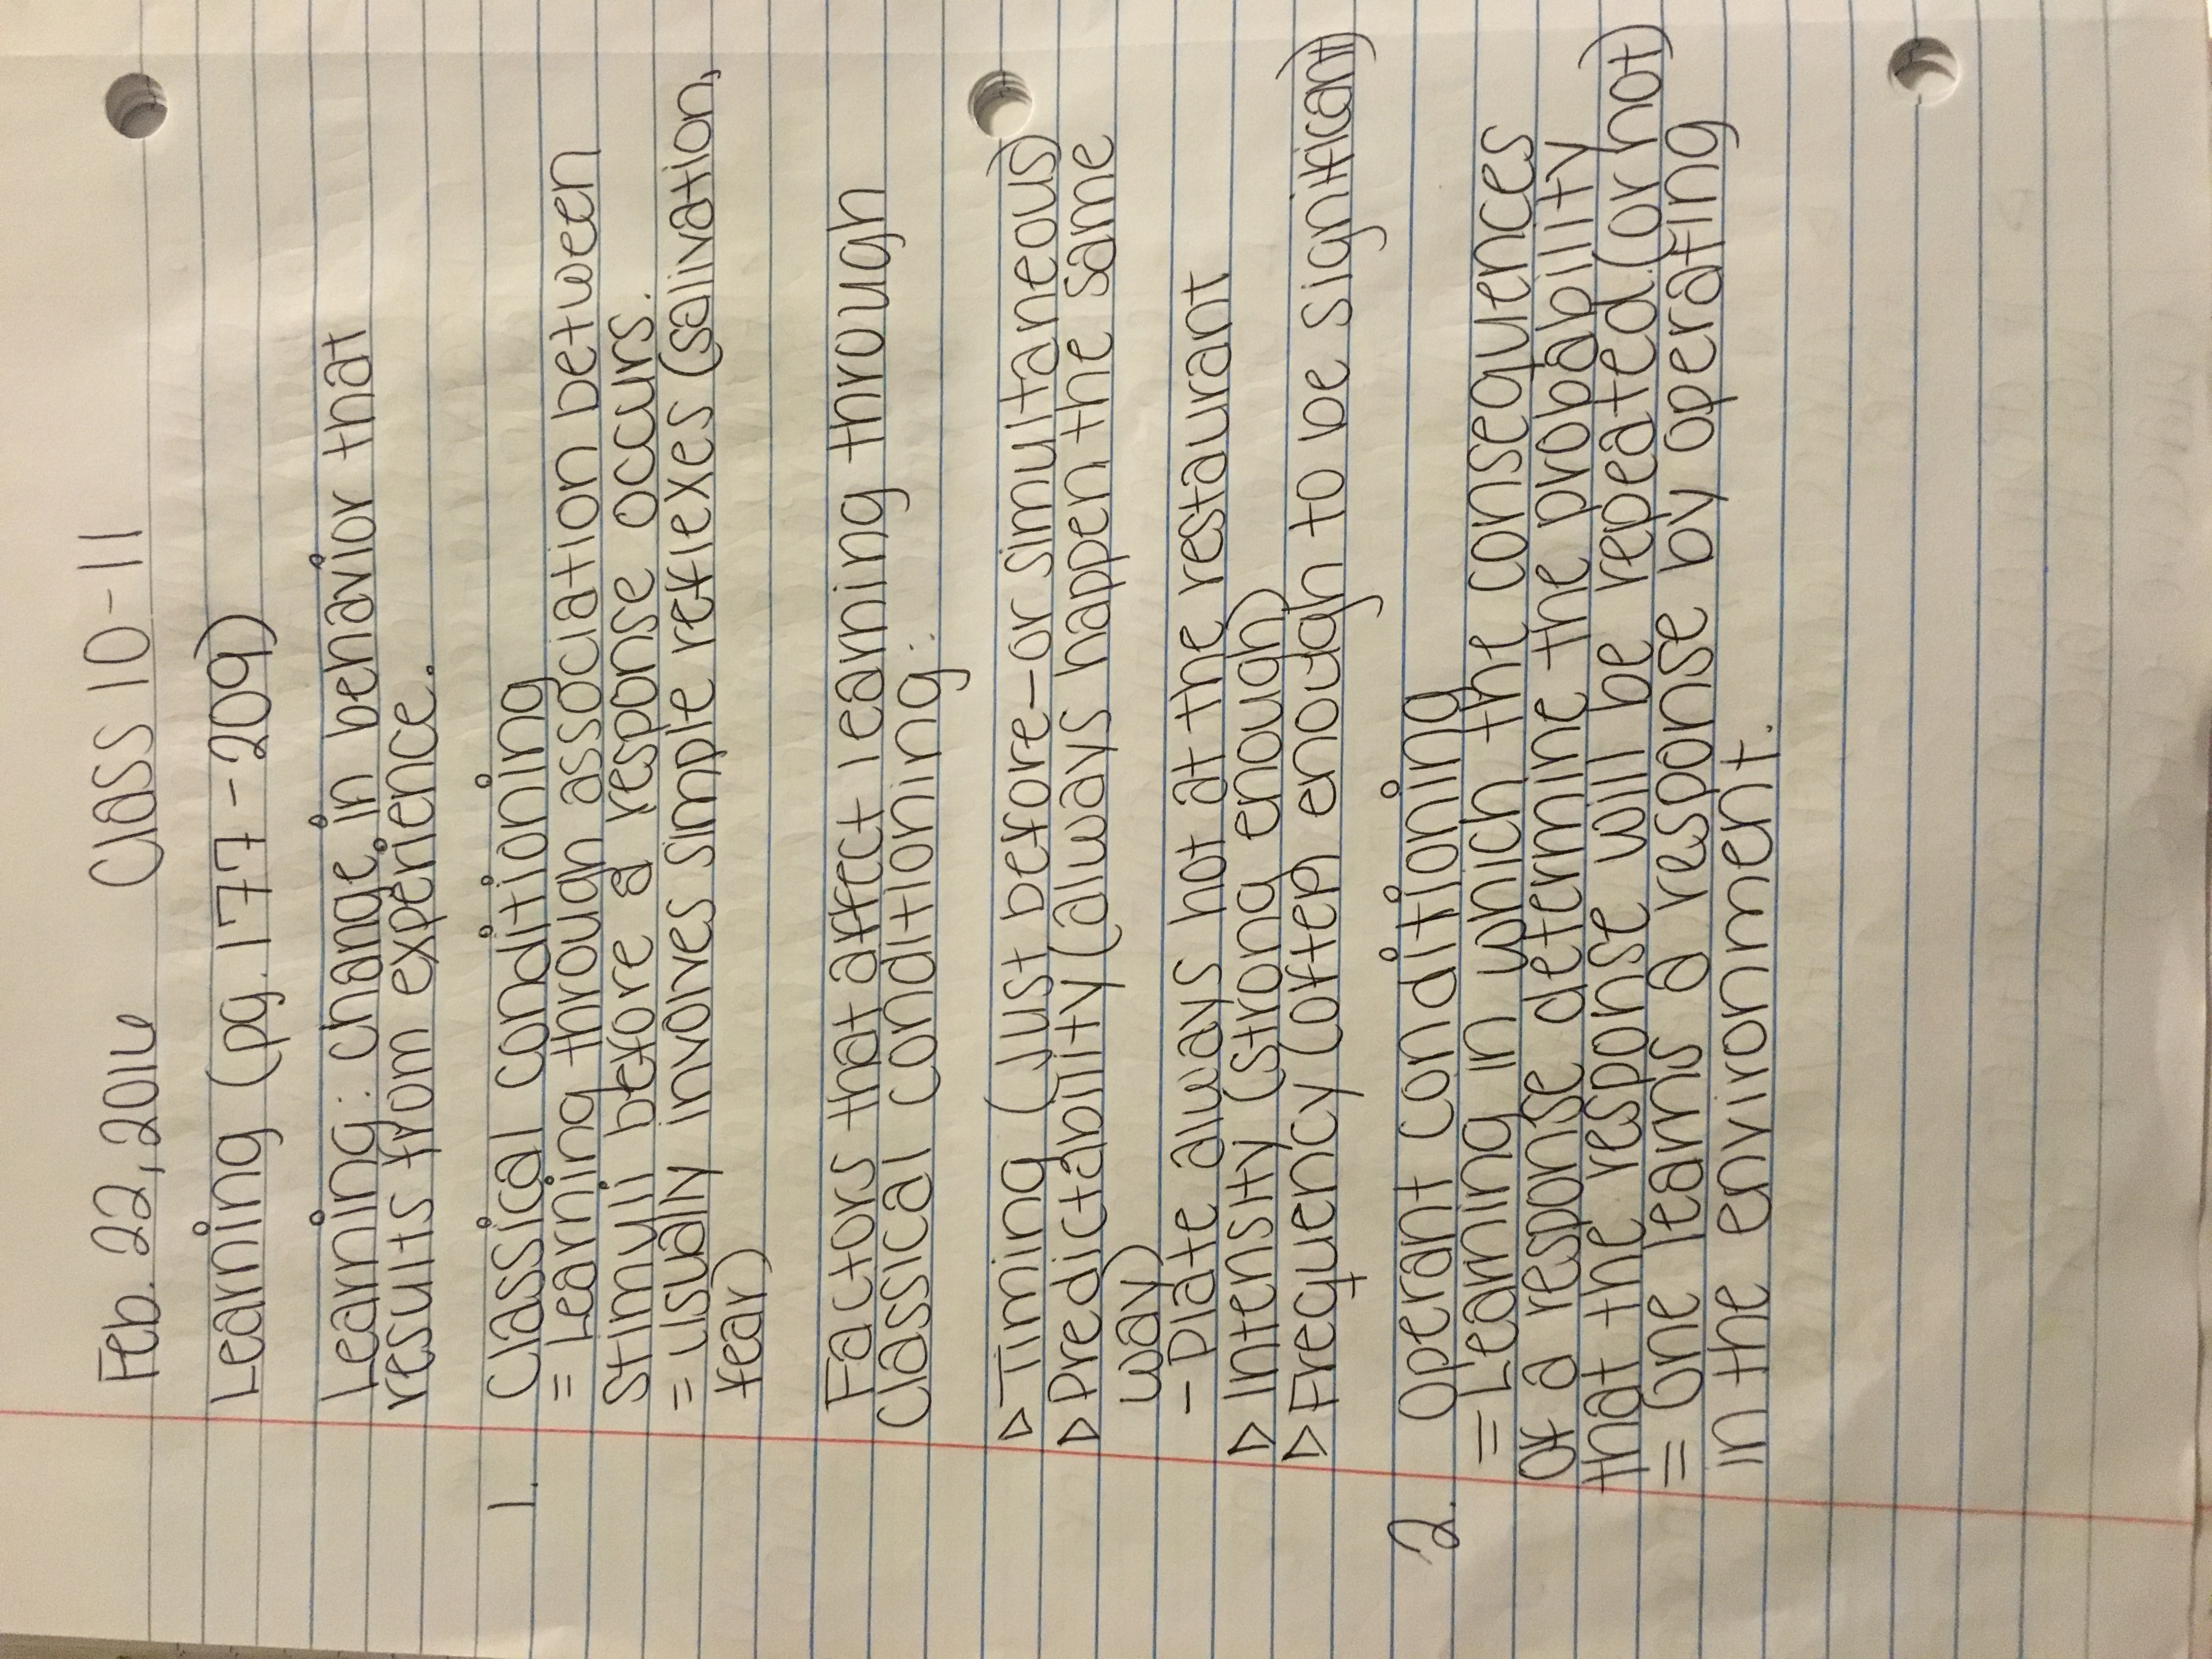 Feb. 22, 2016 Class 10-11
Learning (pg. 177-209)
Learning: change in behavior that
results from experience.
1. Classical conditioning
= Learning through association between
stimuli before a response occurs.
= usually involves simple reflexes (salivation,
fear)
Factors that affect learning through
classical conditioning:
▷ Timing (just before-or simultaneous)
▷ Predictability (always happen the same
way)
- plate always hot at the restaurant
▷ Intensity (strong enough)
▷ Frequency (often enough to be significant)
2. Operant conditioning
= Learning in which the consequences
of a response determine the probability
that the response will be repeated (or not)
= One learns a response by operating
in the environment.